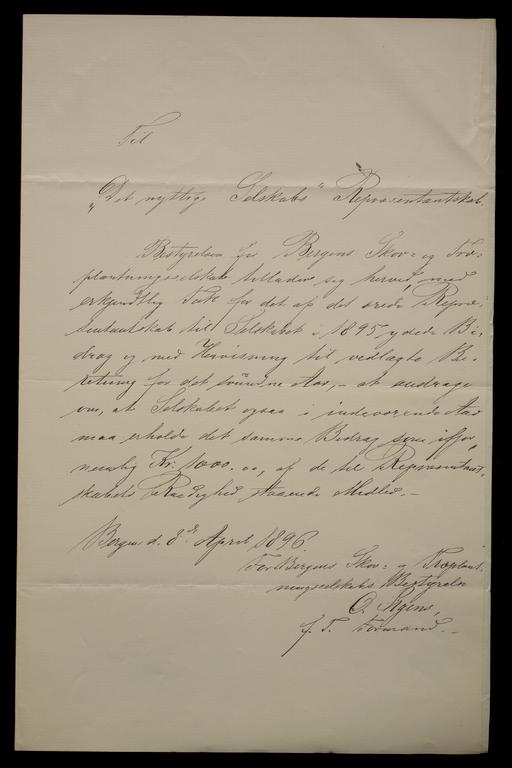 Til
„Det nyttige Selskabs" Repræsentantskab.
Bestyrelsen for Bergens Skov- og Træ-
plantningsselskab tillader sig herved, med
erkjendtlig Tak for det af det ærede Repræ-
sentantskab til Selskabet i 1895 ydede Bi-
drag og med Henvisning til vedlagte Be-
retning for det svundne Aar, – at andrage
om, at Selskabet ogsaa i indeværende Aar
maa erholde det samme Bidrag som ifjor,
nemlig Kr. 1000.00, af de til Repræsentant-
skabets Raadighed staaende Midler. –
Bergen d. 8de April 1896
For Bergens Skov- og Træplant-
ningsselskabs Bestyrelse
O.
f. T. Formand. –